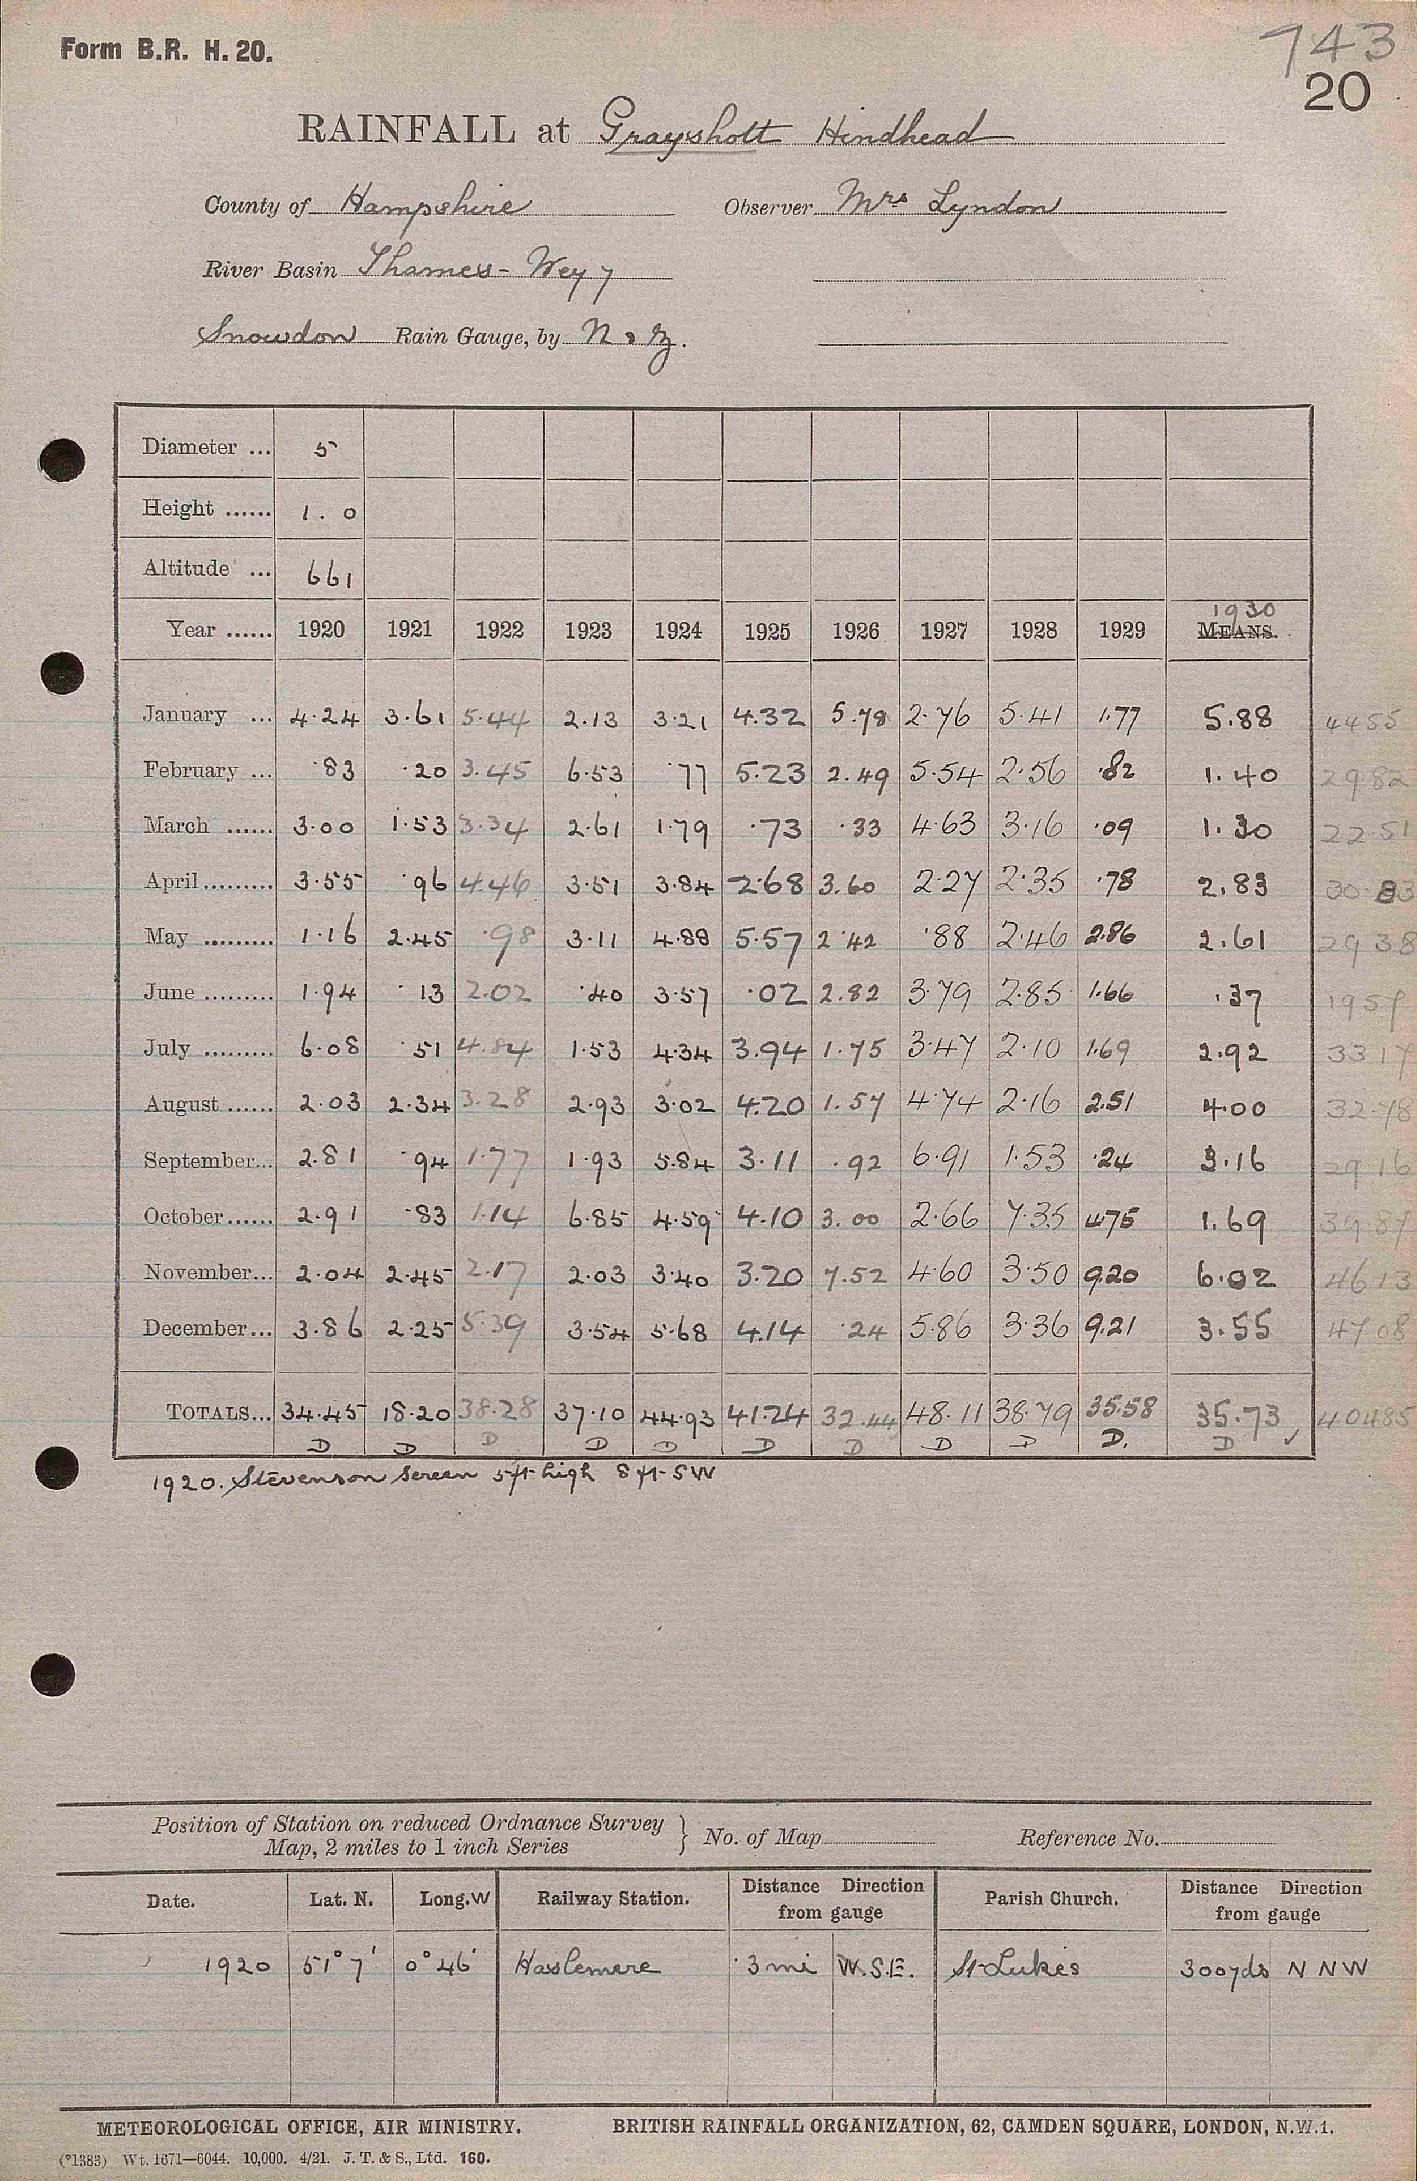 Form B.R. H. 20.
743
20
RAINFALL at Grayshott Hindhead
County of Hampshire Observer Mrs Lyndon
River Basin Thames - Wey 7
Snowdon Rain Gauge, by N & Z.
Diameter ... 5
Height ...... 1. 0
Altitude ... 661
1930
Year ...... 1920 1921 1922 1923 1924 1925 1926 1927 1928 1929 MEANS.
January ... 4.24 3.61 5.44 2.13 3.21 4.32 5.78 2.76 5.41 1.77 5.88 4455
February ... .83 .20 3.45 6.53 .77 5.23 2.49 5.54 2.56 .82 1.40 29.82
March ...... 3.00 1.53 3.34 2.61 1.79 .73 .33 4.63 3.16 .09 1.30 22.51
April ......... 3.55 .96 4.46 3.51 3.84 2.68 3.60 2.27 2.35 .78 2.83 30.83
May ......... 1.16 2.45 .98 3.11 4.88 5.57 2.42 .88 2.46 2.86 2.61 29 38
June ......... 1.94 .13 2.02 .40 3.57 .02 2.82 3.79 2.85 1.66 .37 1957
July ......... 6.08 .51 4.84 1.53 4.34 3.94 1.75 3.47 2.10 1.69 2.92 33 17
August ...... 2.03 2.34 3.28 2.93 3.02 4.20 1.57 4.74 2.16 2.51 4.00 32.78
September... 2.81 .94 1.77 1.93 5.84 3.11 .92 6.91 1.53 .24 3.16 29 16
October ...... 2.91 .83 1.14 6.85 4.59 4.10 3.00 2.66 7.35 4.75 1.69 39.87
November... 2.04 2.45 2.17 2.03 3.40 3.20 7.52 4.60 3.50 9.20 6.02 46 13
December... 3.86 2.25 5.39 3.54 5.68 4.14 .24 5.86 3.36 9.21 3.55 47 08
TOTALS... 34.45 18.20 38.28 37.10 44.93 41.24 32.44 48.11 38.79 35.58 35.73 ✓ 40485
D D D D D D D D D D. D
1920. Stevenson Screen 5ft high 8 ft SW
Position of Station on reduced Ordnance Survey
Map, 2 miles to 1 inch Series } No. of Map Reference No.
Date. Lat. N. Long. W Railway Station. Distance Direction from gauge Parish Church. Distance Direction from gauge
1920 51° 7' 0° 46' Haslemere 3 mi W.S.E. St Lukes 300yds N N W
METEOROLOGICAL OFFICE, AIR MINISTRY. BRITISH RAINFALL ORGANIZATION, 62, CAMDEN SQUARE, LONDON, N.W.1.
(*1383) Wt. 1671—6044. 10,000. 4/21. J. T. & S., Ltd. 160.